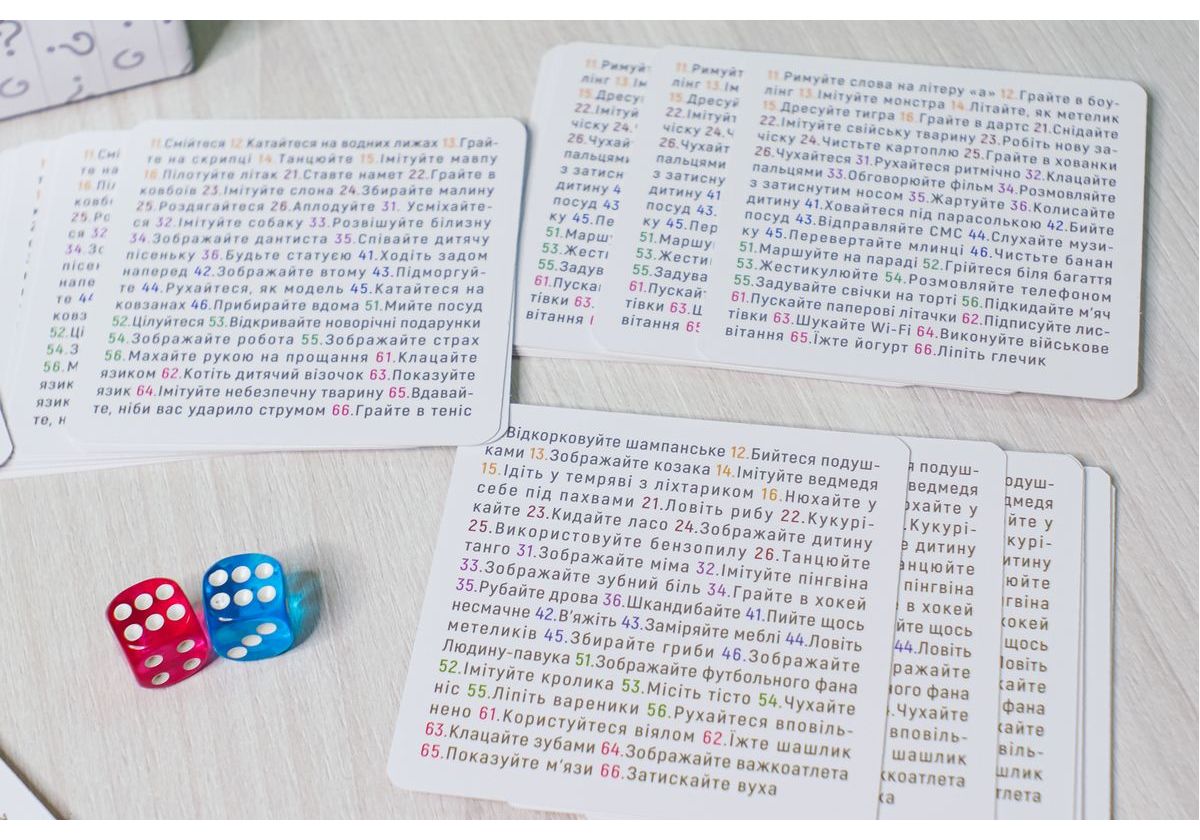 11.Смійтеся 12.Катайтеся на водних лижах 13.Грай-
те на скрипці 14.Танцюйте 15.Імітуйте мавпу
16.Пілотуйте літак 21.Ставте намет 22.Грайте в
ковбоїв 23.Імітуйте слона 24.Збирайте малину
25.Роздягайтеся 26.Аплодуйте 31. Усміхайте-
ся 32.Імітуйте собаку 33.Розвішуйте білизну
34.Зображайте дантиста 35.Співайте дитячу
пісеньку 36.Будьте статуєю 41.Ходіть задом
наперед 42.Зображайте втому 43.Підморгуй-
те 44.Рухайтеся, як модель 45.Катайтеся на
ковзанах 46.Прибирайте вдома 51.Мийте посуд
52.Цілуйтеся 53.Відкривайте новорічні подарунки
54.Зображайте робота 55.Зображайте страх
56.Махайте рукою на прощання 61.Клацайте
язиком 62.Котіть дитячий візочок 63.Показуйте
язик 64.Імітуйте небезпечну тварину 65.Вдавай-
те, ніби вас ударило струмом 66.Грайте в теніс
11.Римуйте слова на літеру «а» 12.Грайте в боу-
лінг 13.Імітуйте монстра 14.Літайте, як метелик
15.Дресуйте тигра 16.Грайте в дартс 21.Снідайте
22.Імітуйте свійську тварину 23.Робіть нову за-
чіску 24.Чистьте картоплю 25.Грайте в хованки
26.Чухайтеся 31.Рухайтеся ритмічно 32.Клацайте
пальцями 33.Обговорюйте фільм 34.Розмовляйте
з затиснутим носом 35.Жартуйте 36.Колисайте
дитину 41.Ховайтеся під парасолькою 42.Бийте
посуд 43.Відправляйте СМС 44.Слухайте музи-
ку 45.Перевертайте млинці 46.Чистьте банан
51.Маршуйте на параді 52.Грійтеся біля багаття
53.Жестикулюйте 54.Розмовляйте телефоном
55.Задувайте свічки на торті 56.Підкидайте м’яч
61.Пускайте паперові літачки 62.Підписуйте лис-
тівки 63.Шукайте Wi-Fi 64.Виконуйте військове
вітання 65.Їжте йогурт 66.Ліпіть глечик
Відкорковуйте шампанське 12.Бийтеся подуш-
ками 13.Зображайте козака 14.Імітуйте ведмедя
15.Ідіть у темряві з ліхтариком 16.Нюхайте у
себе під пахвами 21.Ловіть рибу 22.Кукурі-
кайте 23.Кидайте ласо 24.Зображайте дитину
25.Використовуйте бензопилу 26.Танцюйте
танго 31.Зображайте міма 32.Імітуйте пінгвіна
33.Зображайте зубний біль 34.Грайте в хокей
35.Рубайте дрова 36.Шкандибайте 41.Пийте щось
несмачне 42.В’яжіть 43.Заміряйте меблі 44.Ловіть
метеликів 45.Збирайте гриби 46.Зображайте
Людину-павука 51.Зображайте футбольного фана
52.Імітуйте кролика 53.Місіть тісто 54.Чухайте
ніс 55.Ліпіть вареники 56.Рухайтеся вповіль-
нено 61.Користуйтеся віялом 62.Їжте шашлик
63.Клацайте зубами 64.Зображайте важкоатлета
65.Показуйте м’язи 66.Затискайте вуха